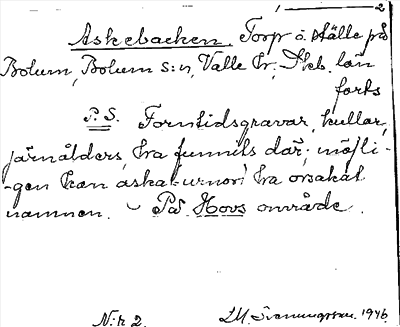 2
Askebacken. Torp o. ställe på
Bolum, Bolum s:n, Valle hr, Skb. län
forts
P.S. Forntidsgravar, kullar,
järnålders, ha funnits där; möjli-
-gen kan aska(-urnor) ha orsakat
namnen. - På Hovs område.
N:r 2. 1946.